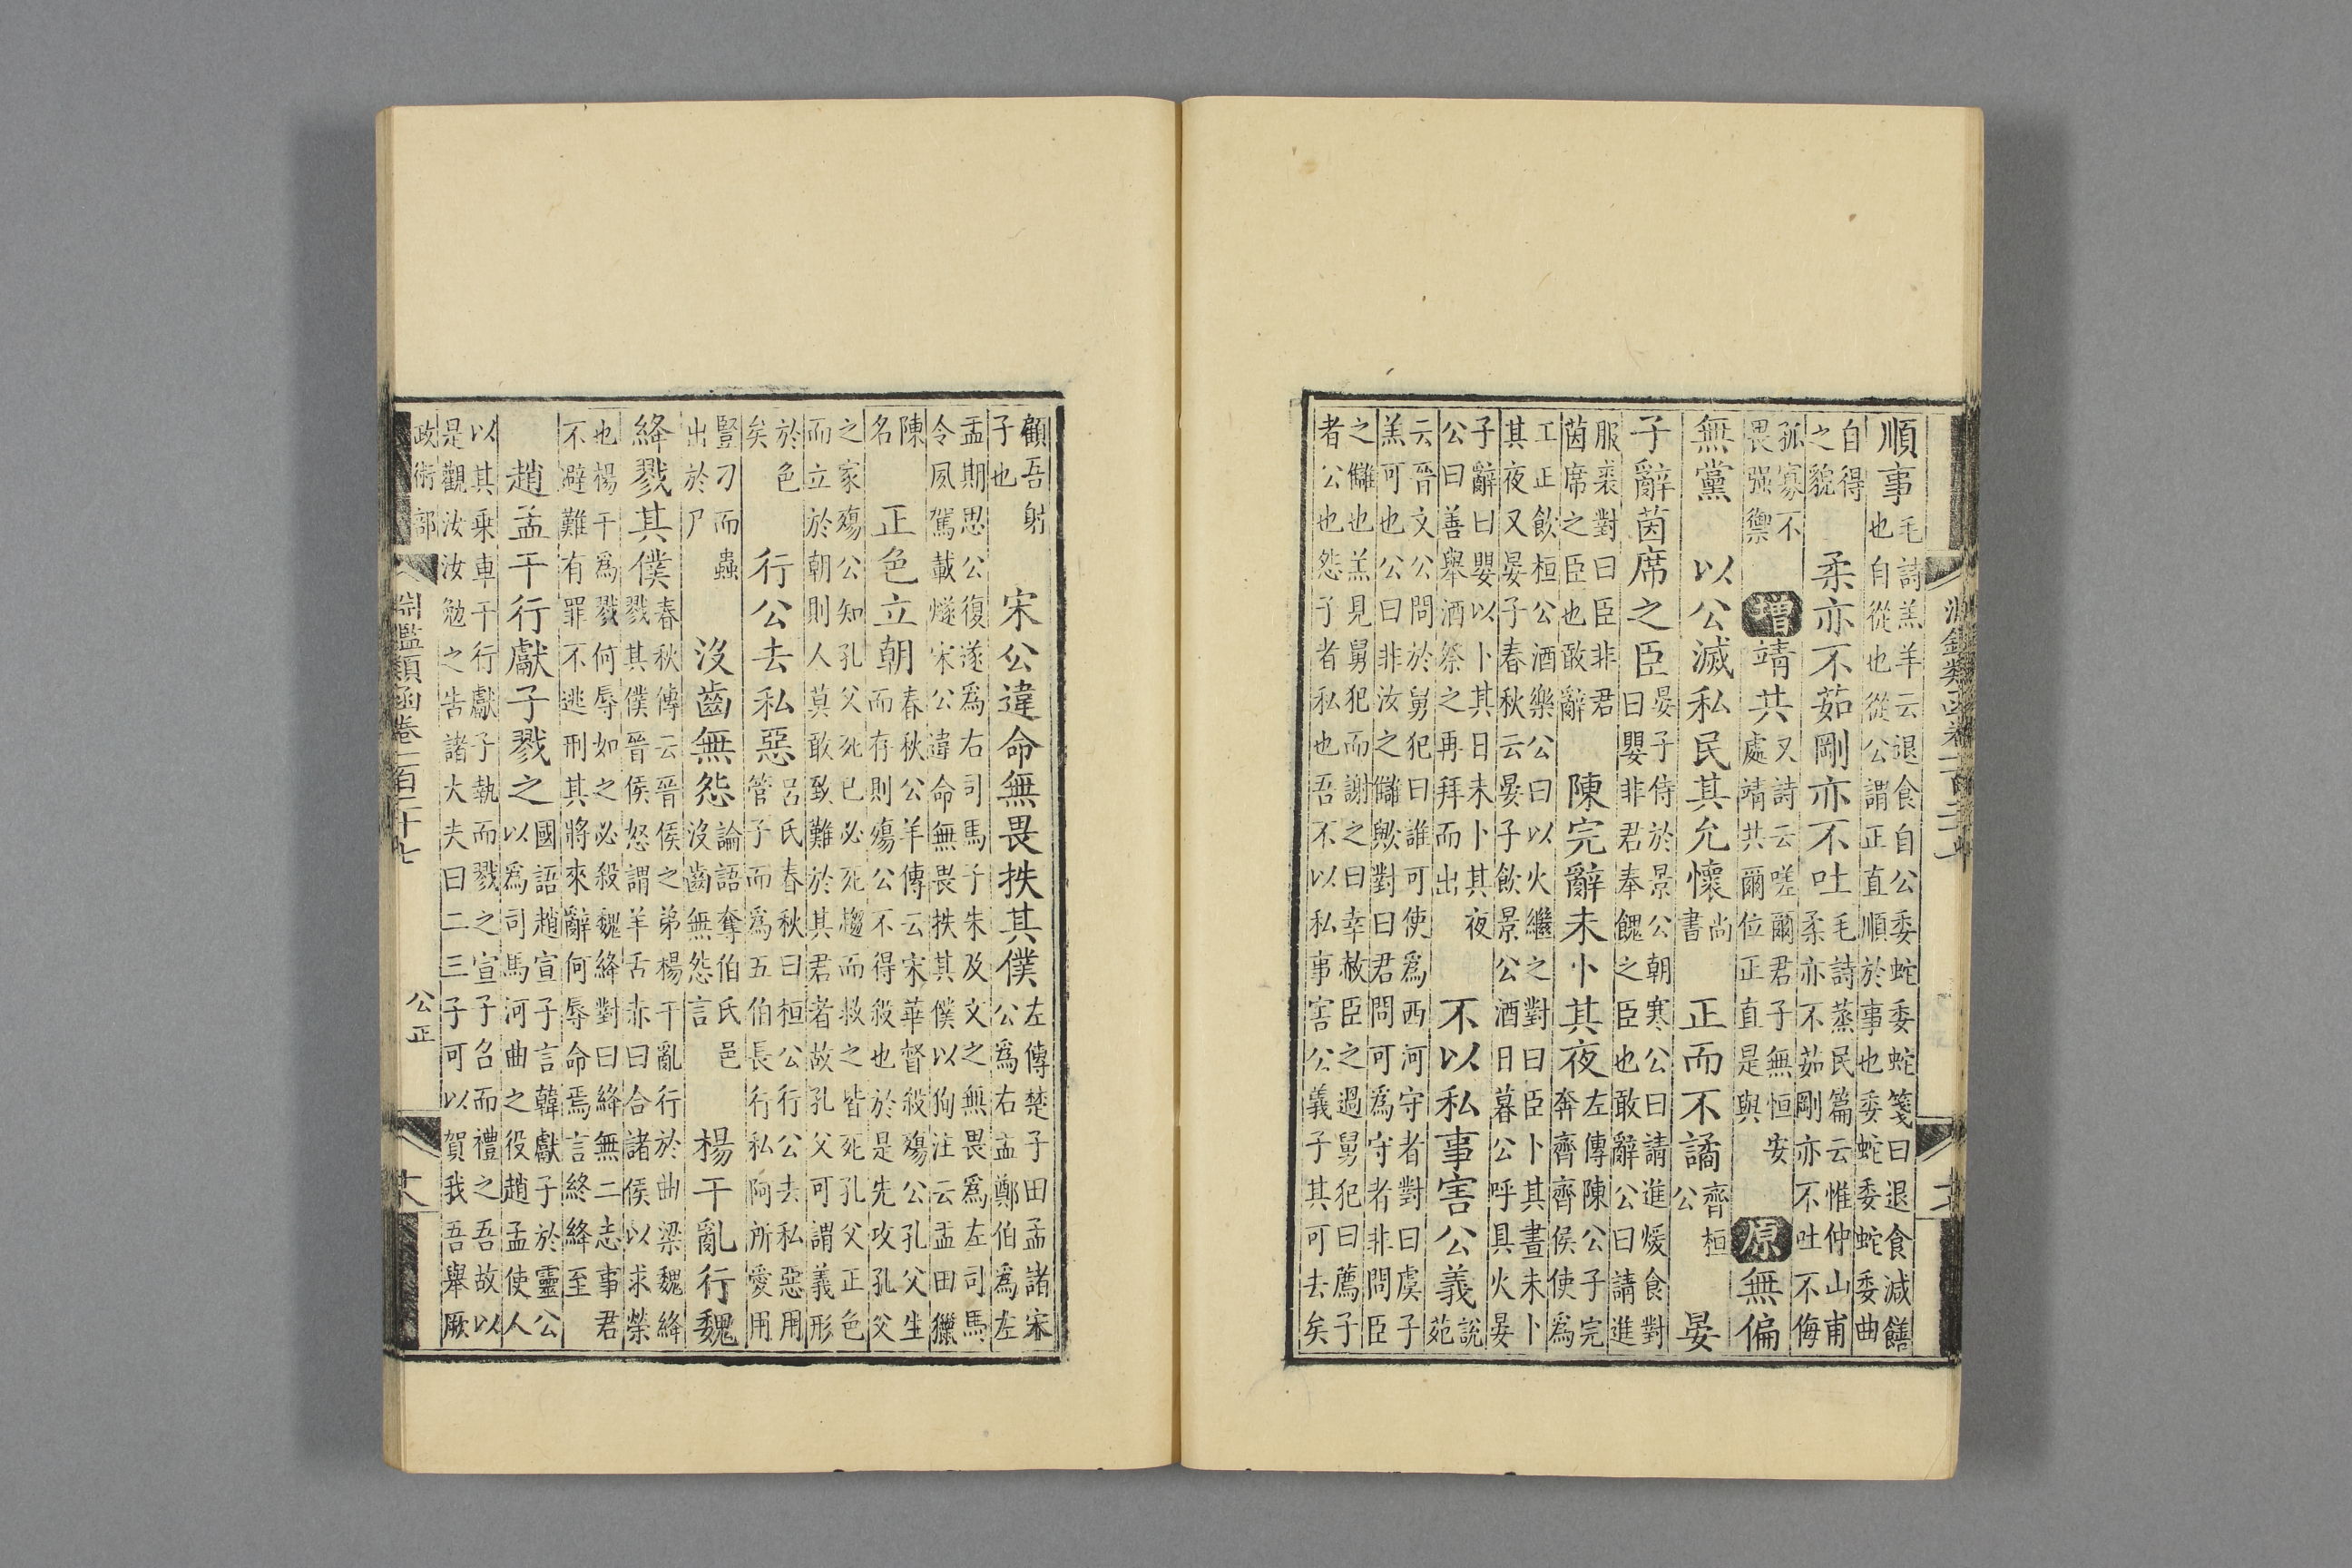 順事毛詩羔羊云退食自公委蛇委蛇箋曰退食減饍也自從也從公謂正直順於事也委蛇委蛇委曲
自得之貌 柔亦不茹剛亦不吐毛詩蒸民篇云惟仲山甫柔亦不茹剛亦不吐不侮
孤寡不畏强禦 增靖共又詩云嗟爾君子無恒安處靖共爾位正直是與 原無偏
無黨 以公滅私民其允懷尚書 正而不譎齊桓公 晏
子辭茵席之臣晏子侍於景公朝寒公曰請進煖食對曰嬰非君奉餽之臣也敢辭公曰請進
服裘對曰臣非君茵席之臣也敢辭 陳完辭未卜其夜左傳陳公子完奔齊齊侯使為
工正飲桓公酒樂公曰以火繼之對曰臣卜其晝未卜其夜又晏子春秋云晏子飲景公酒日暮公呼具火晏
子辭曰嬰以卜其日未卜其夜公曰善舉酒祭之再拜而出 不以私事害公義說苑
云晉文公問於舅犯曰誰可使為西河守者對曰虞子羔可也公曰非汝之讎歟對曰君問可為守者非問臣
之讎也羔見舅犯而謝之曰幸赦臣之過舅犯曰薦子者公也怨子者私也吾不以私事害公義子其可去矣
顧吾射子也 宋公違命無畏抶其僕左傳楚子田孟諸宋公為右盂鄭伯為左
盂期思公復遂為右司馬子朱及文之無畏為左司馬令夙駕載燧宋公違命無畏抶其僕以徇注云盂田獵
陳名 正色立朝春秋公羊傳云宋華督殺殤公孔父生而存則殤公不得殺也於是先攻孔父
之家殤公知孔父死已必死趨而救之皆死孔父正色而立於朝則人莫敢致難於其君者故孔父可謂義形
於色矣 行公去私惡呂氏春秋曰桓公行公去私惡用管子而為五伯長行私阿所愛用
豎刁而蟲出於尸 沒齒無怨論語奪伯氏邑沒齒無怨言 楊干亂行魏
絳戮其僕春秋傳云晉侯之弟楊干亂行於曲梁魏絳戮其僕晉侯怒謂羊舌赤曰合諸侯以求榮
也楊干為戮何辱如之必殺魏絳對曰絳無二志事君不避難有罪不逃刑其將來辭何辱命焉言終絳至
趙孟干行獻子戮之國語趙宣子言韓獻子於靈公以為司馬河曲之役趙孟使人
以其乘車干行獻子執而戮之宣子召而禮之吾故以是觀汝汝勉之告諸大夫曰二三子可以賀我吾舉厥
政術部 淵鑑類函卷一百二十七 公正 十八